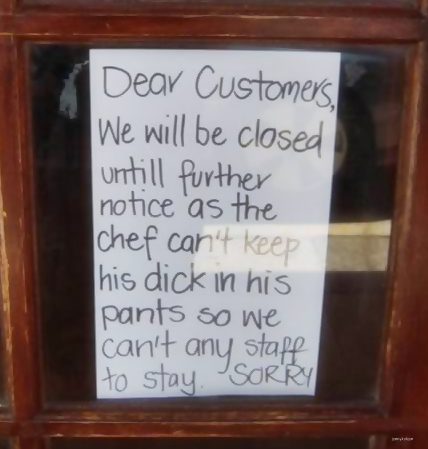 Dear Customers,
We will be closed
untill further
notice as the
chef can't keep
his dick in his
pants so we
can't any staff
to stay. SORRY